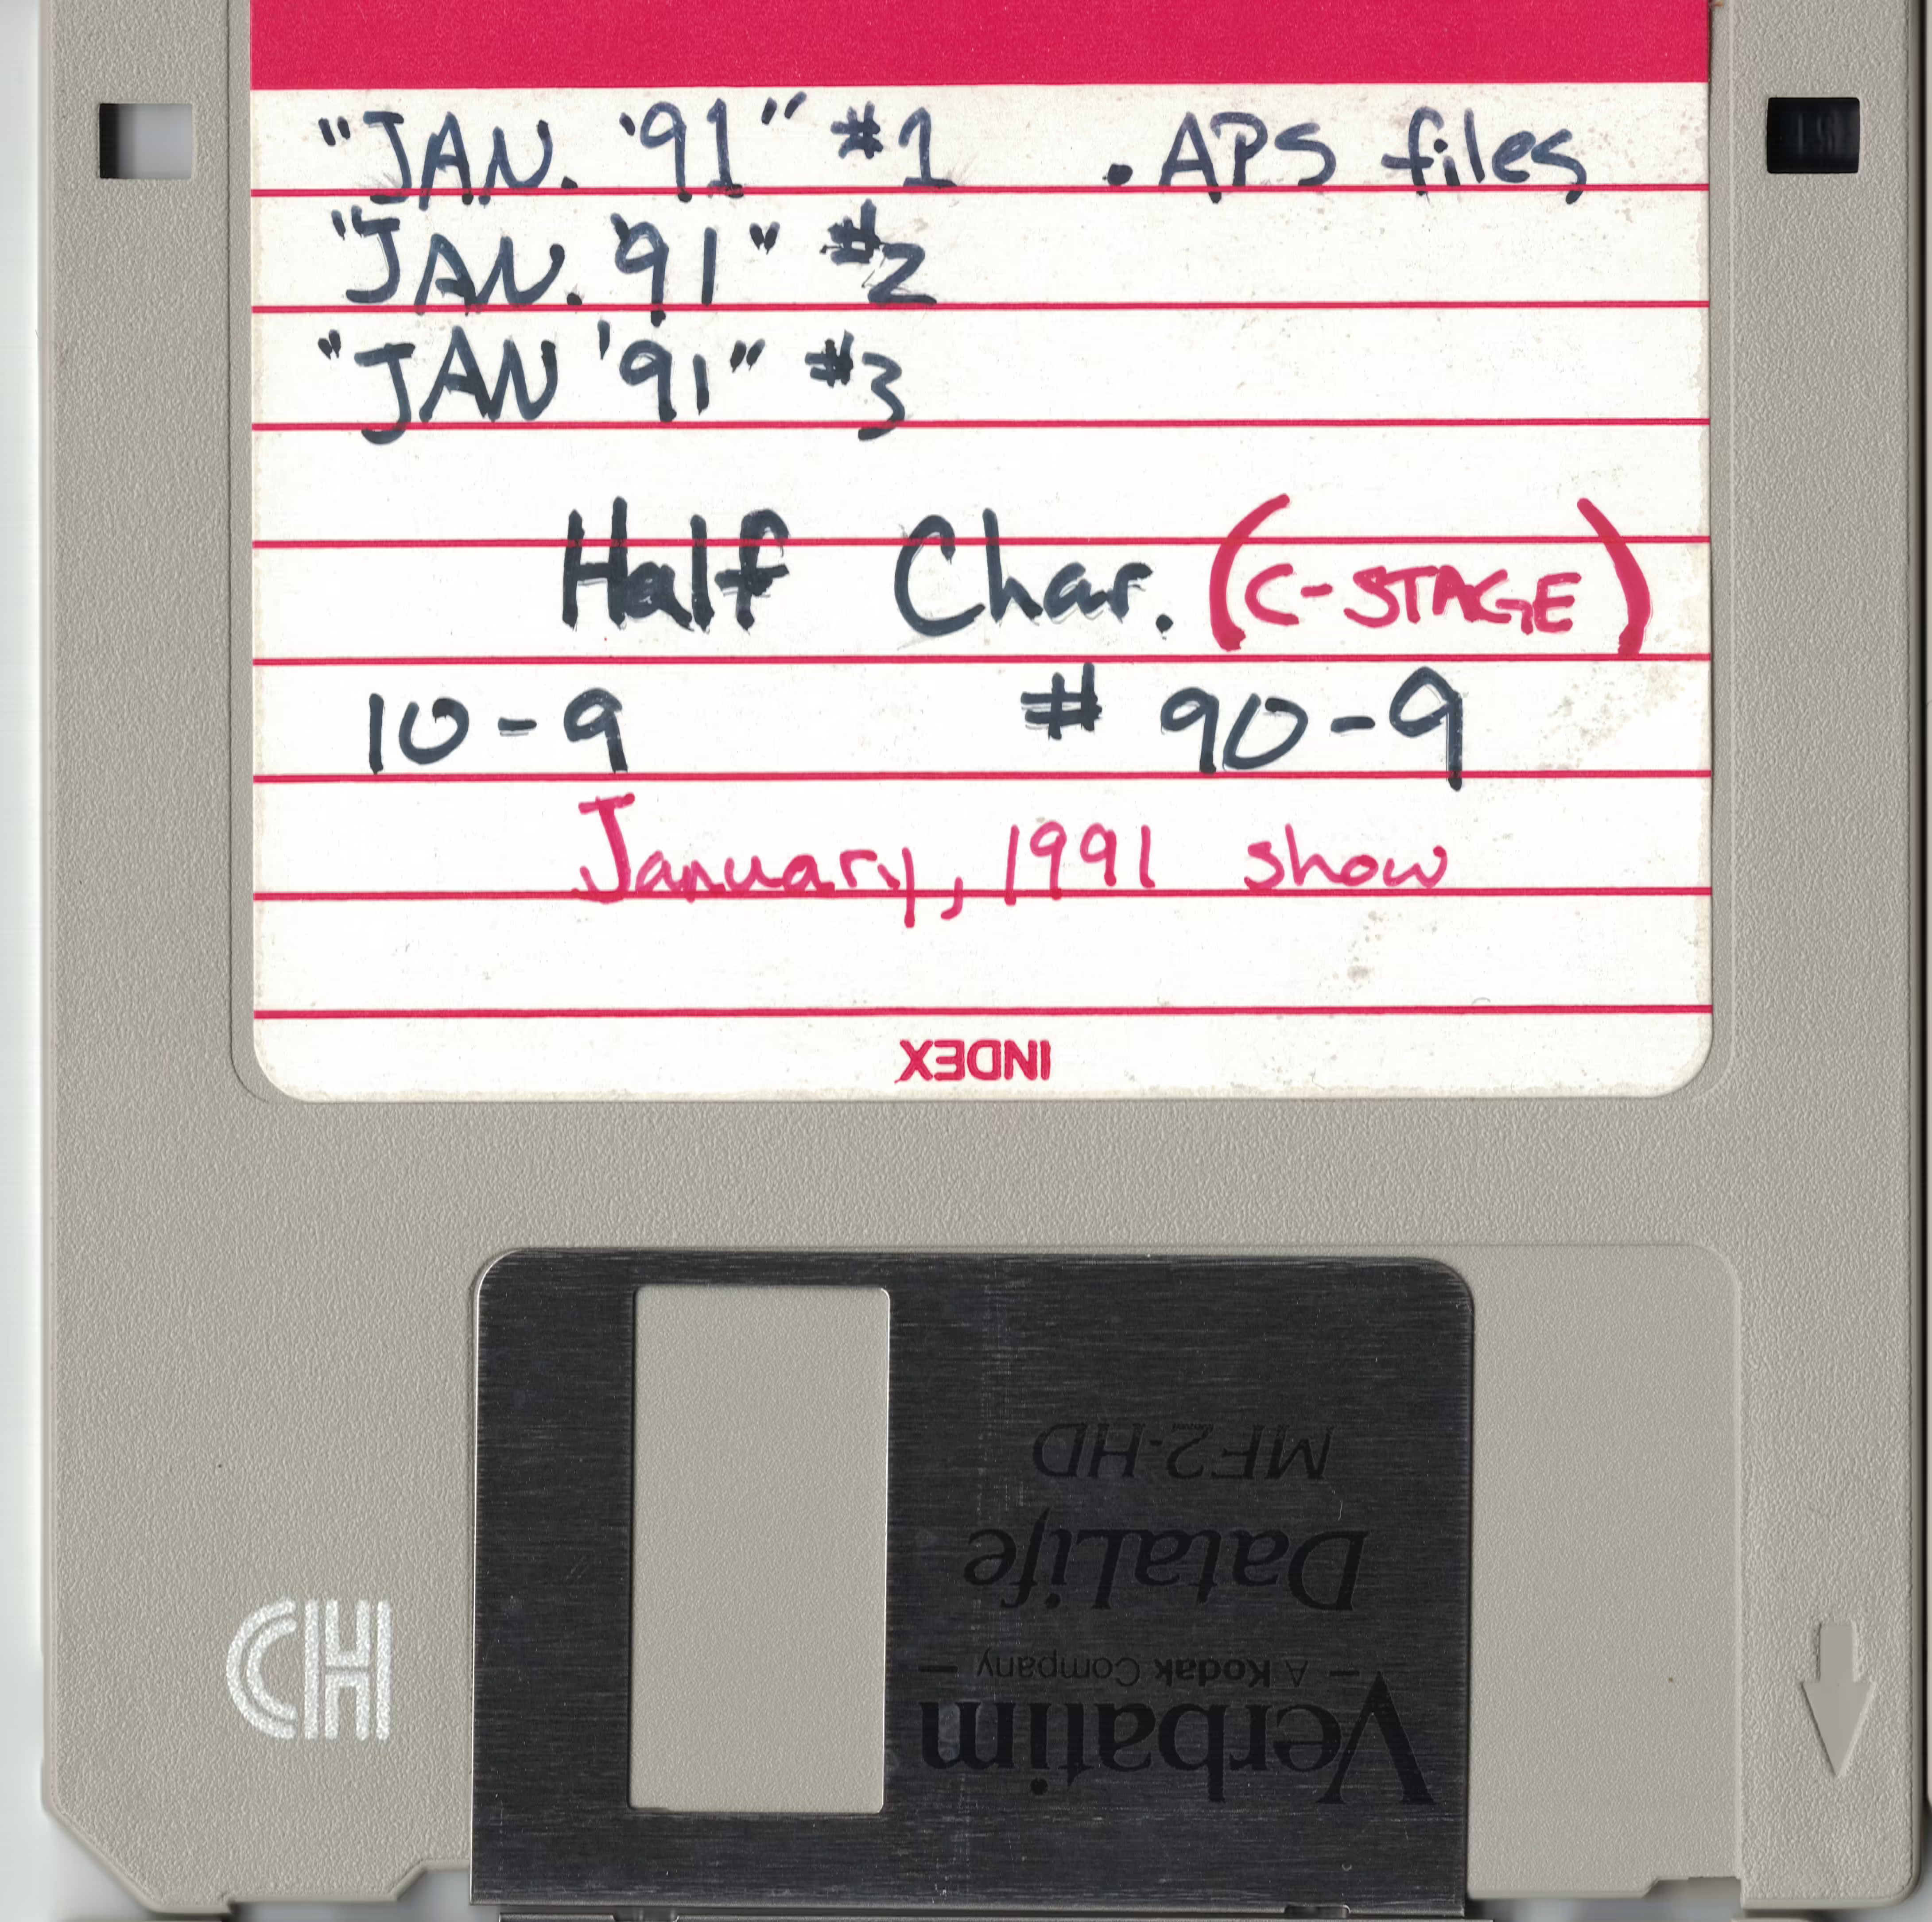 "JAN. '91" #1 .APS files
"JAN. '91" #2
"JAN '91" #3
Half Char. (C-STAGE)
10-9 # 90-9
January, 1991 show
INDEX
MF2-HD
DataLife
— A Kodak Company —
Verbatim
HD